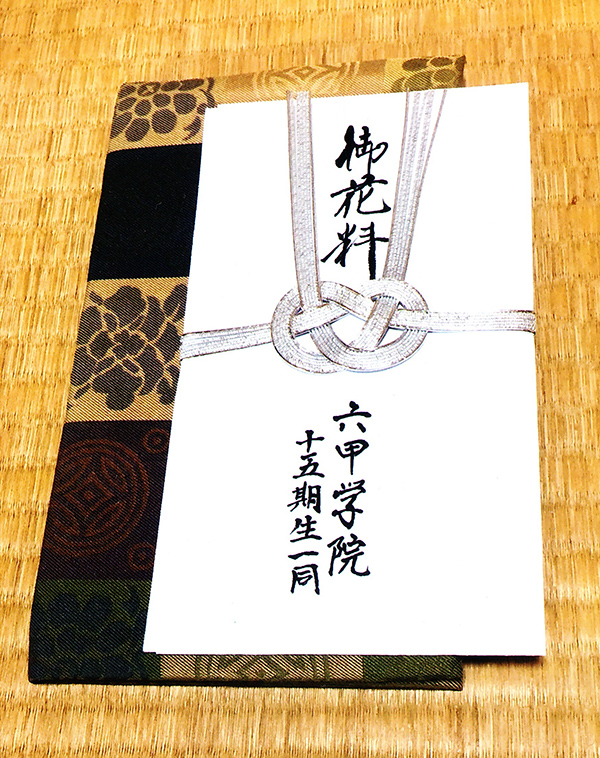 御花料
六甲学院
十五期生一同